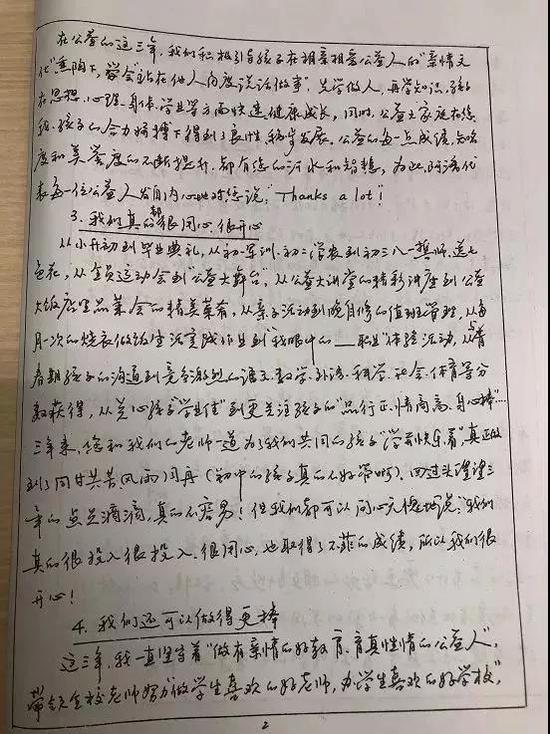 在公益的这三年,我们积极引导孩子在相亲相爱公益人的"亲情文
化"熏陶下,学会"站在他人角度说话做事",先学做人,再学知识,孩子
在思想、心理、身体、学业等方面快速健康成长,同时,公益大家庭在您
我、孩子的合力
下得到了良性稳步发展。公益的每一点成绩,知名
度和美誉度的不断提升,都有您的汗水和智慧,为此,
代
表每一位公益人发自内心地对您说,"Thanks a lot"!
3. 我们真的都很用心、很开心
从小升初到毕业典礼,从初一军训、初二学农到初三八一誓师、送七
色花,从全员运动会到"公益大舞台",从公益大讲堂的精彩讲座到公益
大饭店里品菜会的精美菜肴,从亲子活动到晚自修的值班管理,从每
月一次的烧衣做饭生活实践作业到"我眼中的__职业"体验活动,从青
春期孩子的沟通到竞争激烈的语文、数学、外语、科学、社会、体育等分
数获得,从关心孩子"学业佳"到更关注孩子的"品行正、情商高、身心棒"……
三年来,您和我们的老师一道为了我们共同的孩子"学并快乐着",真正做
到了同甘共苦风雨同舟(初中的孩子真的不好带呀)。回过头望望三
年的点点滴滴,真的不容易!但我们都可以问心无愧地说:"我们
真的很投入很投入、很用心,也取得了不菲的成绩,所以我们很
开心!
4. 我们还可以做得更棒
这三年,我一直坚守着"做有亲情的好教育、育真性情的公益人",
带领全校老师努力"做学生喜欢的好老师,办学生喜欢的好学校",
2